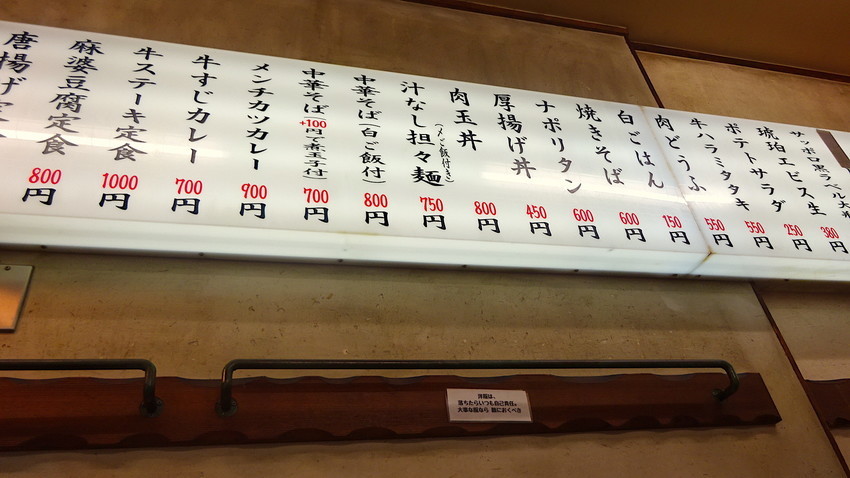 唐揚げ定食
麻婆豆腐定食
800円
牛ステーキ定食
1000円
牛すじカレー
700円
メンチカツカレー
900円
中華そば(+100円で煮玉子付)
700円
中華そば(白ご飯付)
800円
汁なし担々麺
(〆ご飯付き)
750円
肉玉丼
800円
厚揚げ丼
450円
ナポリタン
600円
焼きそば
600円
白ごはん
150円
肉どうふ
550円
牛ハラミタタキ
550円
ポテトサラダ
250円
琥珀エビス生
380円
サッポロ黒ラベル大
洋服は、
落ちたらいつも自己責任。
大事な服なら 膝におくべき